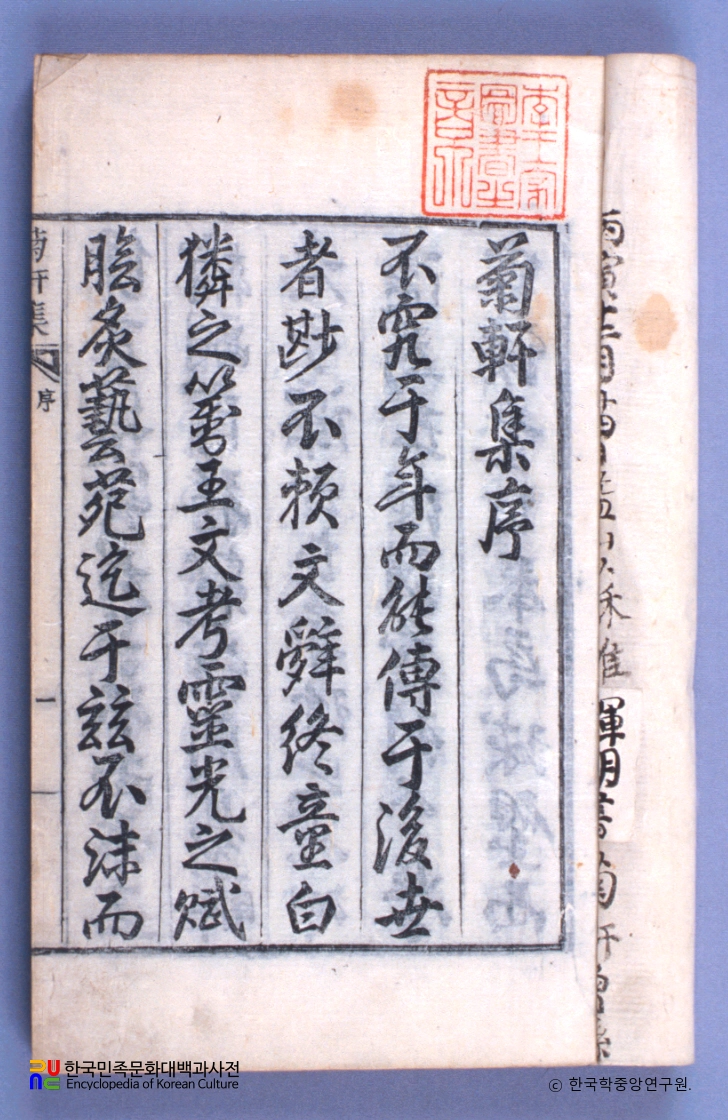 李王家
圖書之
章
菊軒集序
不究于年而能傳于後世
者尠不賴文辭終童白
獜之王文考靈光之賦
膾炙藝苑迄于玆不沫而
菊軒集
序
一
한국민족문화대백과사전
Encyclopedia of Korean Culture
© 한국학중앙연구원.